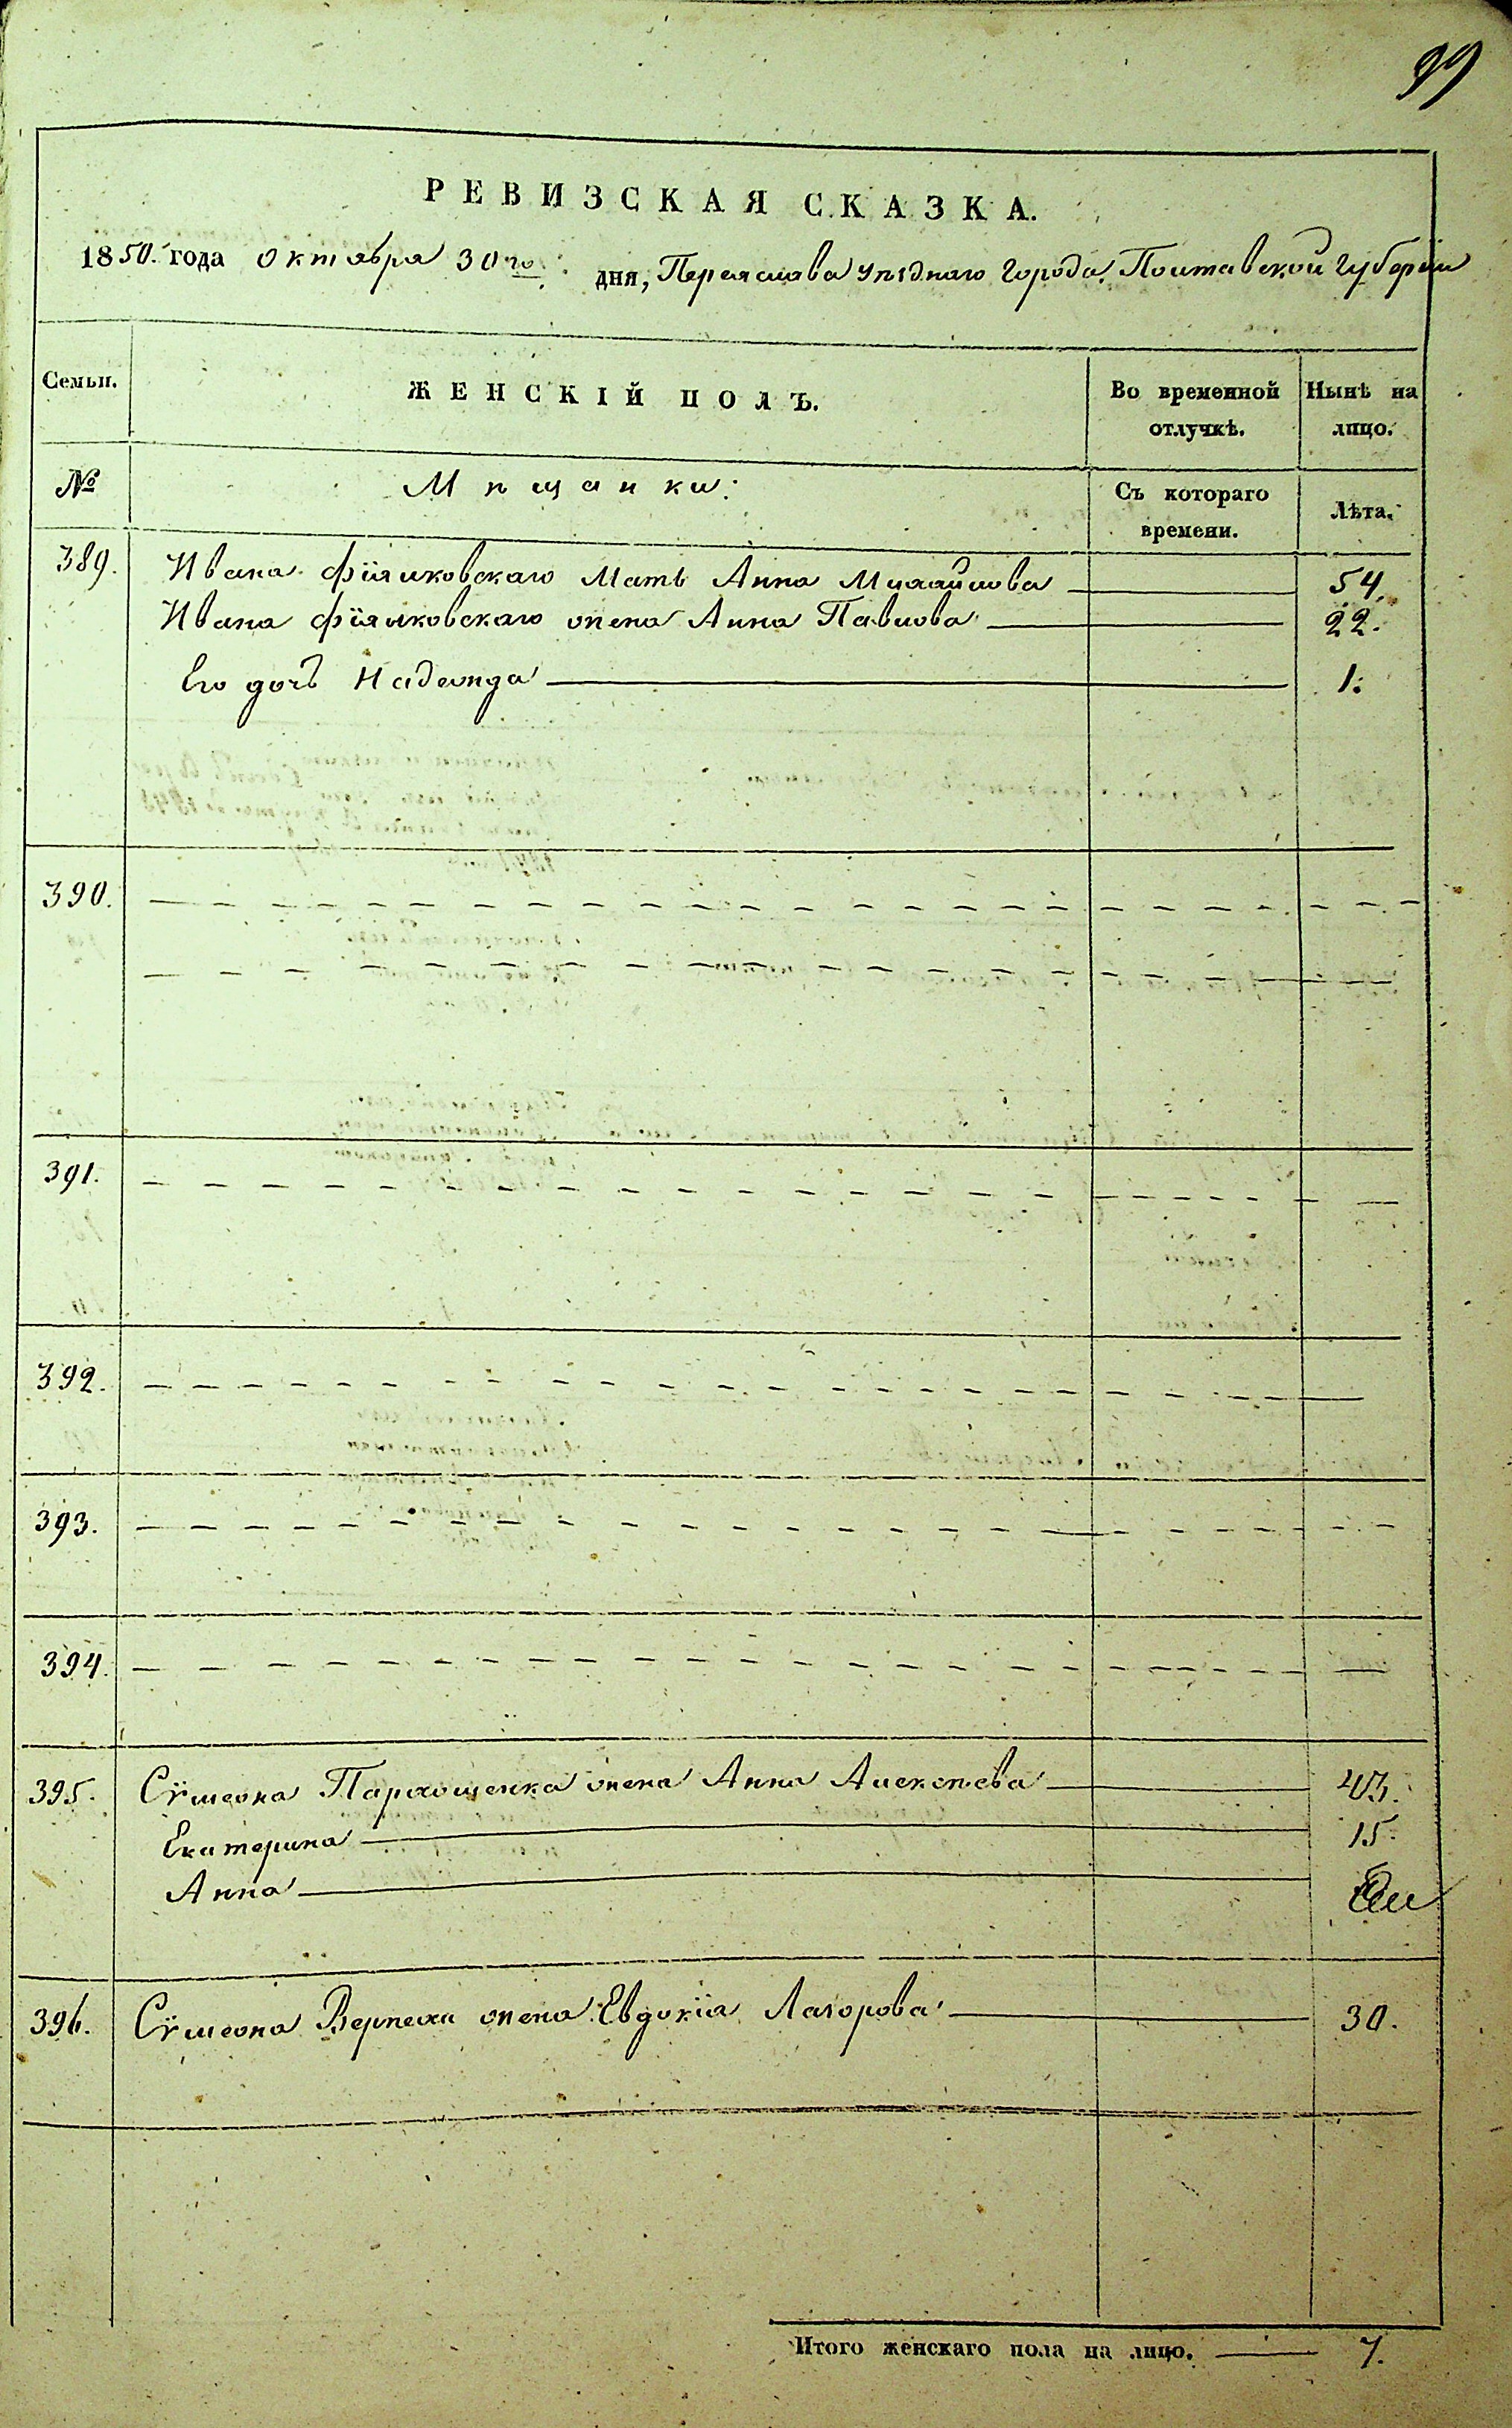 99
РЕВИЗСКАЯ СКАЗКА.
1850. года октября 30го дня, Переяслава уѣзднаго города Полтавской губерніи
Семьи.
ЖЕНСКІЙ ПОЛЪ.
Во временной отлучкѣ.
Нынѣ на лицо.
№
Мѣщанки:
Съ котораго времени.
Лѣта.
389. Ивана Фіялковскаго мать Анна Михайлова 54.
Ивана Фіялковскаго жена Анна Павлова 22.
Его дочь Надежда 1.
390.
391.
392.
393.
394.
395. Сѵмеона Пархоменка жена Анна Алексѣева 43.
Екатерина 15.
Анна
396. Сѵмеона жена Евдокія Лазорова 30.
Итого женскаго пола на лицо. 7.